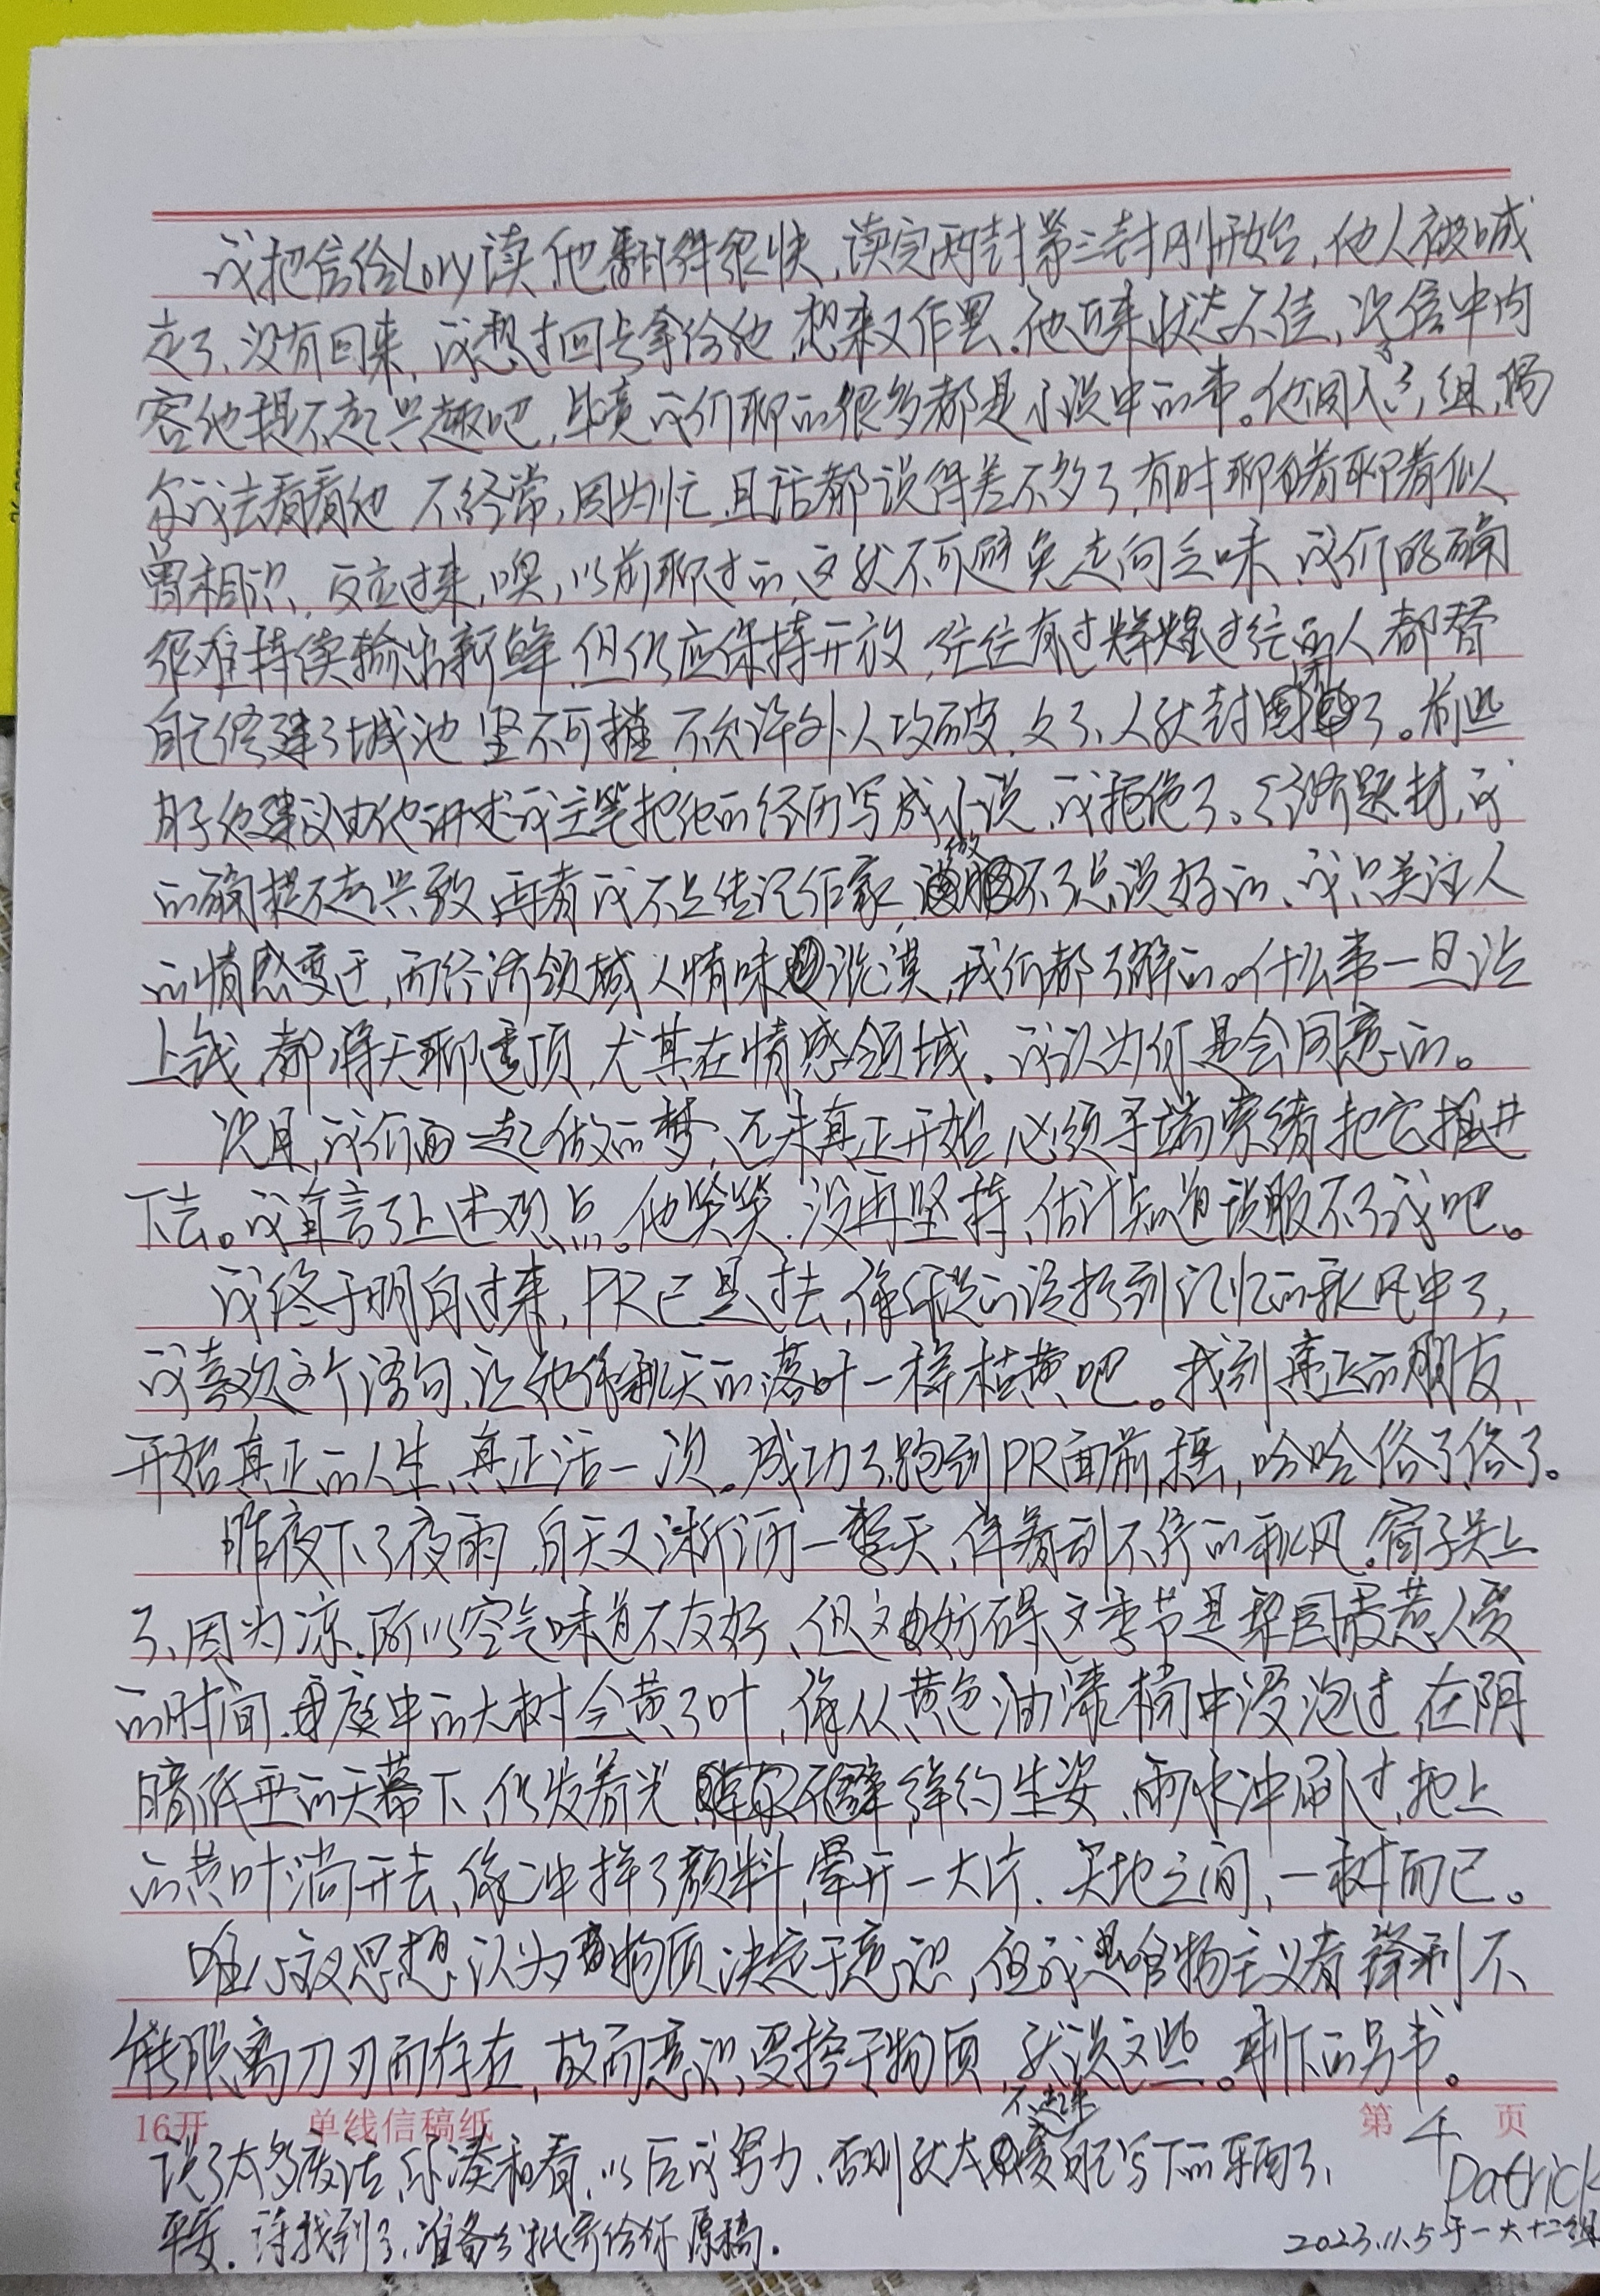 我把信给Lory读,他翻得很快,读完两封第三封刚开始,他人被喊
走了,没有回来,我想过回头拿给他,想来又作罢。他近来状态不佳,次信中内
容他提不起兴趣吧,毕竟我们聊的很多都是小说中的事。他调入了组,偶
尔我去看看他,不经常,因为忙,且话都说得差不多了,有时聊着聊着似
曾相识,反应过来,噢,以前聊过的,这就不可避免走向乏味,我们的确
很难持续输出新鲜,但仍应保持开放,往往有过辉煌过往的人都替
自己修建了城池,坚不可摧,不允许外人攻破,久了,人就封闭了。前些
时候他建议由他讲述我主笔把他的经历写成小说,我拒绝了。经济题材,我
的确提不起兴致,再者我不是传记作家,做不了,说好的,我只关注人
的情感变迁,而经济领域人情味淡漠,我们都了解的。什么事一旦沾
上钱,都将天聊透顶,尤其在情感领域。我认为你是会同意的。
次且,我们一起做的梦,还未真正开始,必须寻端索绪把它推进
下去。我直言了上述观点。他笑笑,没再坚持,估计知道说服不了我吧。
我终于明白过来,PR已是过去,像你说的没落到记忆的秋风中了,
我喜欢这个语句,让他像秋天的落叶一样枯黄吧。找到真正的朋友,
开始真正的人生,真正活一次。成功了跑到PR面前摇,哈哈俗了俗了。
昨夜下了夜雨,白天又淅沥一整天,伴着刮不停的秋风。窗子关上
了,因为凉,所以空气味道不友好,但这妨碍这季节是梨园最惹人爱
的时间,庭中的大树全黄了叶,像从黄色油漆桶中浸泡过,在阴
暗低垂的天幕下,仍发着光,绰约生姿,雨水冲刷过,地上
的黄叶淌开去,像冲掉了颜料,晕开一大片,天地之间,一树而已。
唯心主义思想,认为物质决定于意识,但我是唯物主义者,锋利不
能脱离刀刃而存在,故而意识受控于物质,就说这些。剩下的另书。
16开 单线信稿纸 第 4 页
说了太多废话,你凑和看,以后我努力,否则就太不起自己写下的东西了,
平安。诗找到了,准备分批寄给你原稿。
Patrick
2023.11.5于一六十二组